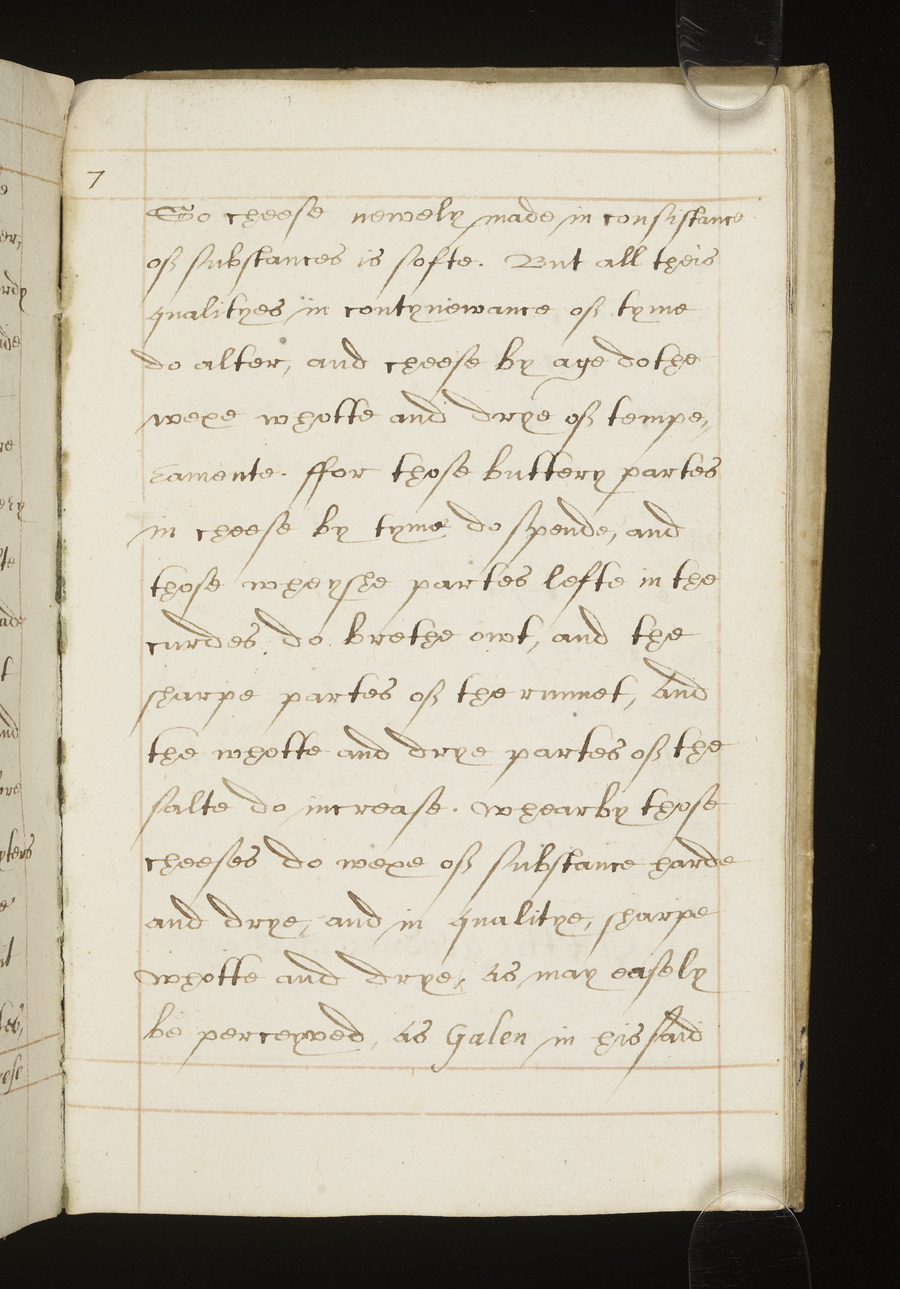 7
So cheese newely made in consistance
off substances is softe. But all theis
qualityes in contynewance off tyme
do alter, and cheese by age dothe
wexe whotte and drye off tempe,
ramente. ffor those buttery partes
in cheese by tyme do spende, and
those wheyshe partes lefte in the
curdes do brethe owt, and the
sharpe partes off the runnet, And
the whotte and drye partes off the
salte do increase. whearby those
cheeses do wexe off substance harde
and drye, and in qualitye, sharpe
whotte and drye, As may easely
be perceyved, As Galen in his said